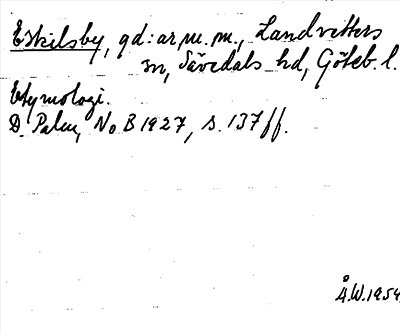 Eskilsby, gd:ar m.m., Landvetters
sn, Sävedals hd, Göteb. l.
Etymologi.
D. Palm, NoB 1927, s. 137 ff.
Å.W. 1954